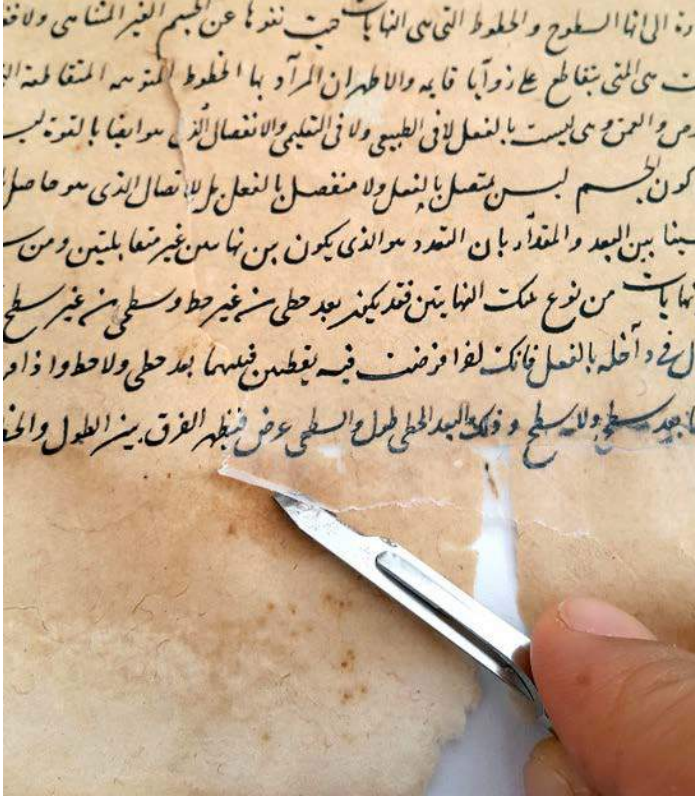 دة الى انها السطوح والخطوط التى هى النهايات حيث نفوها عن الجسم الغير المتناهى ولا
ت هى التى تتقاطع على زوايا قايمه والاظهر ان المراد بها الخطوط المتوهمه المتقاطعة
والعمق وهى ليست بالفعل لا فى الطبيعى ولا فى التعليمى والانفصال الذى هو ايضا بالقوة ليـ
كون الجسم ليس بمتصل بالفعل ولا منفصل بالفعل بل الاتصال الذى هو حاصل
سينا بين البعد والمقدار بان البعد هو الذى يكون بين نهايتين غير متقابلتين ومن
نهايات من نوع تلك النهايتين فقد يكون بعد خطى من غير خط وسطحى من غير سطح
فى داخله بالفعل فانك اذا فرضت فيه نقطتين فبينهما بعد خطى ولا خط واذا
بعد سطحى ولا سطح وذلك البعد الخطى طول والسطحى عرض فيظهر الفرق بين الطول والخـ